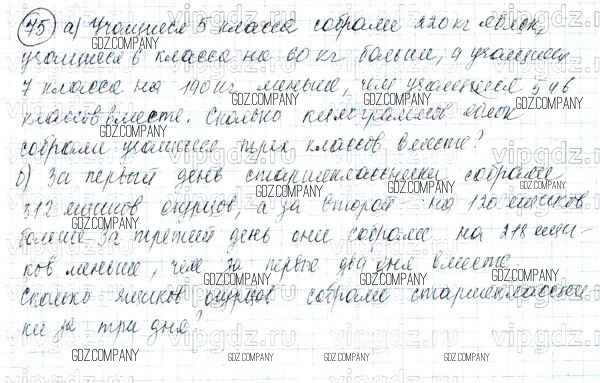 75 а) Учащиеся 5 класса собрали 220 кг яблок,
учащиеся 6 класса на 60 кг больше, а учащиеся
7 класса на 190 кг меньше, чем учащиеся 5 и 6
классов вместе. Сколько килограммов яблок
собрали учащиеся трех классов вместе?
б) За первый день старшеклассники собрали
312 ящиков огурцов, а за второй - на 120 ящиков
больше. За третий день они собрали на 218 ящи-
ков меньше, чем за первые два дня вместе.
Сколько ящиков огурцов собрали старшеклассни
ки за три дня?
GDZ.COMPANY
vipgdz.ru